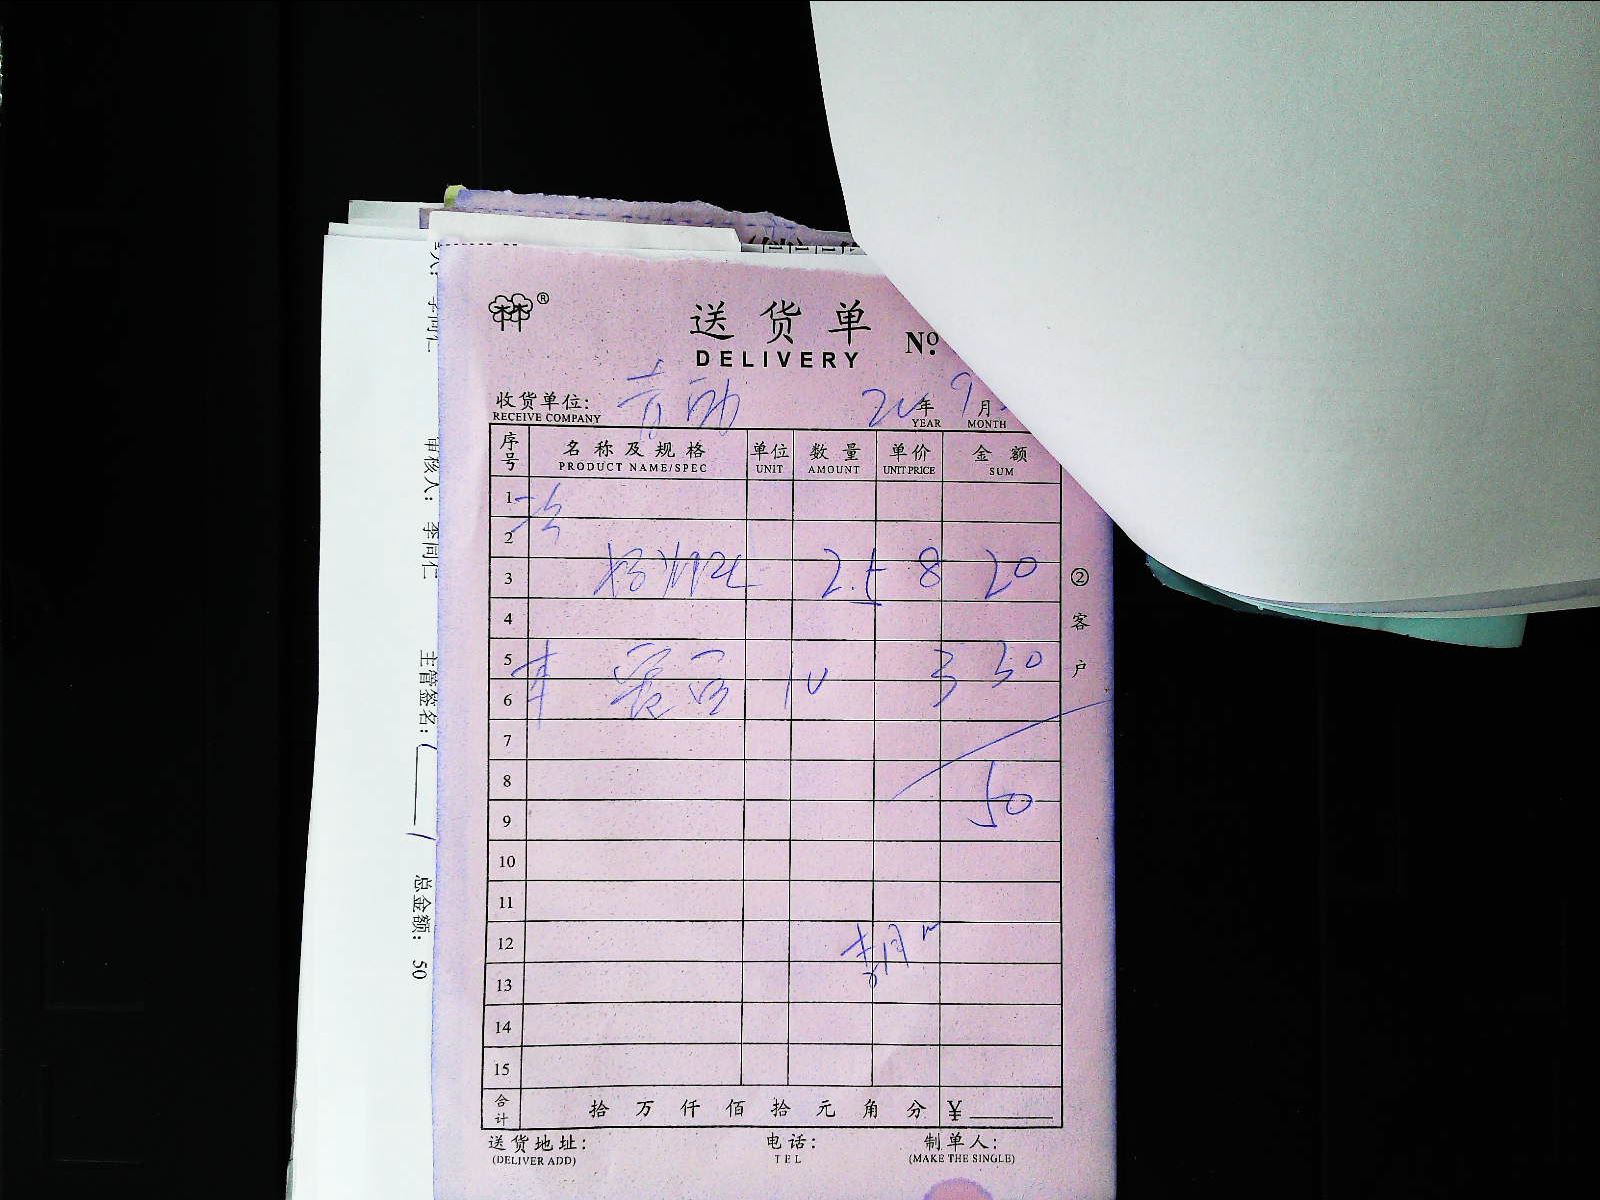 送货单
DELIVERY
№
收货单位:
RECEIVE COMPANY
年 9 月
YEAR MONTH
序号 名称及规格 单位 数量 单价 金额
PRODUCT NAME/SPEC UNIT AMOUNT UNIT PRICE SUM
1
2
3 2.5 8 20
4
5 30
6 10 3
7
8 50
9
10
11
12
13
14
15
合计 拾 万 仟 佰 拾 元 角 分 ¥
送货地址: 电话: 制单人:
(DELIVER ADD) TEL (MAKE THE SINGLE)
②客户
李同仁
审核人: 李同仁
主管签名:
总金额: 50